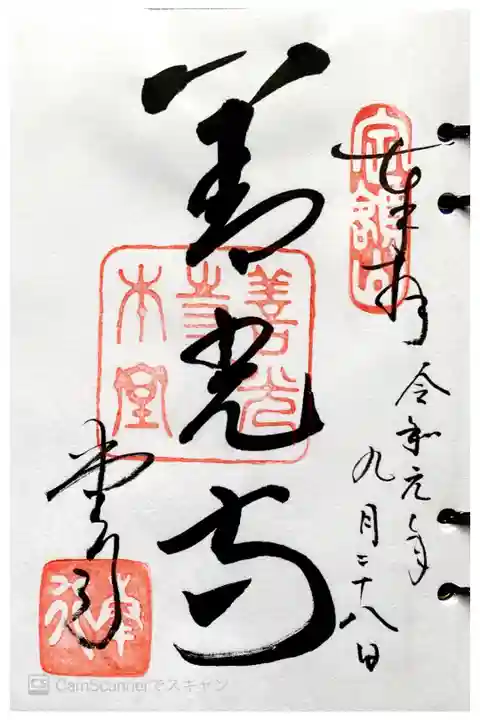 奉拝
定額山
令和元年
九月二十八日
善光寺
善光
寺
本堂
堂司
CS CamScannerでスキャン